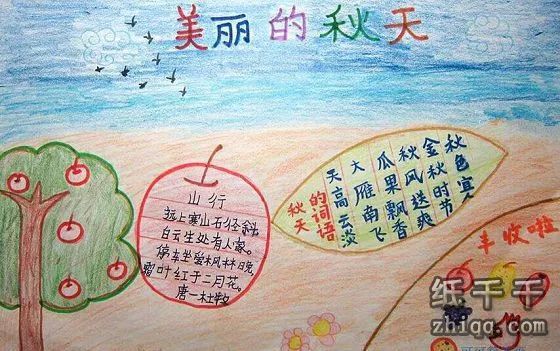 美丽的秋天
山行
远上寒山石径斜
白云生处有人家。
停车坐爱枫林晚,
霜叶红于二月花。
唐一杜牧
秋天
的词语
天高云淡
大雁南飞
瓜果飘香
秋风送爽
金秋时节
秋色宜人
丰收啦
纸千千
zhiqq.com